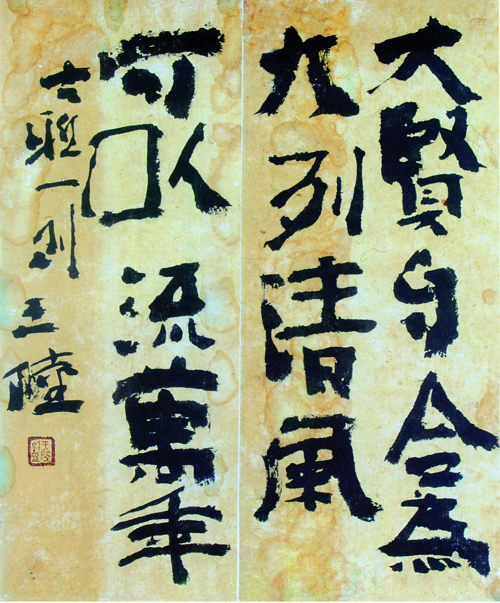 大賢自合為
九列清風
可以流萬年
古聯一則 王陸